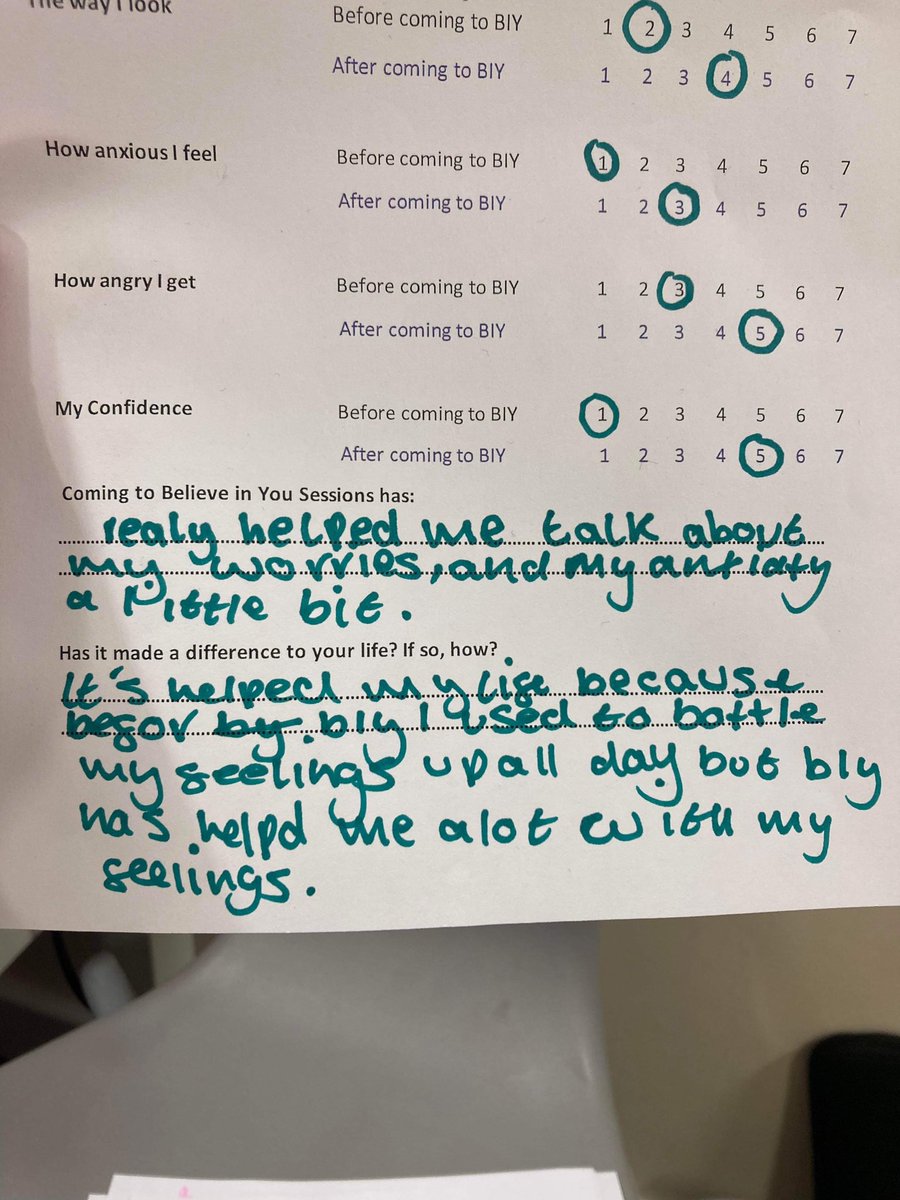 The way I look
Before coming to BIY 1 2 3 4 5 6 7
After coming to BIY 1 2 3 4 5 6 7
How anxious I feel Before coming to BIY 1 2 3 4 5 6 7
After coming to BIY 1 2 3 4 5 6 7
How angry I get Before coming to BIY 1 2 3 4 5 6 7
After coming to BIY 1 2 3 4 5 6 7
My Confidence Before coming to BIY 1 2 3 4 5 6 7
After coming to BIY 1 2 3 4 5 6 7
Coming to Believe in You Sessions has:
realy helped me talk about
my worries, and my antiaty
a little bit.
Has it made a difference to your life? If so, how?
It's helped my life because
befor by bly I used to bottle
my feelings up all day but bly
has helpd me alot with my
feelings.